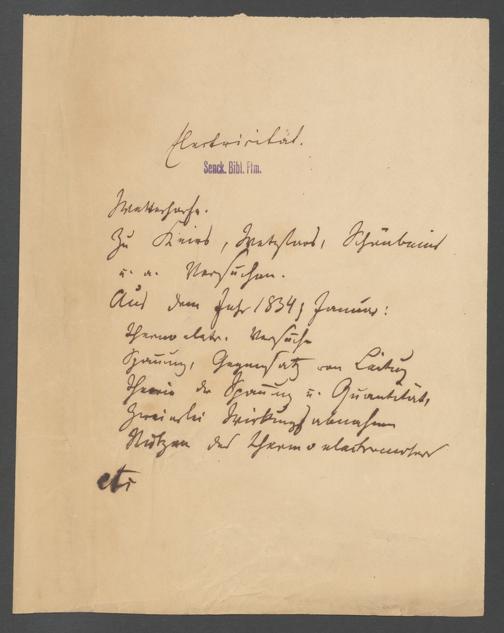 Electricität.
Senck. Bibl. Ffm.
Wetterharfe.
Zu , , Schönbeins
u. a. Versuchen.
Aus dem Jahr 1834, Januar:
Thermoelectr. Versuche
Spannung, Gegensatz von Leitung
Theorie der Spannung u. Quantität,
Zweierlei Wirkungsabnahme
Nutzen des Thermoelectromotors
etc